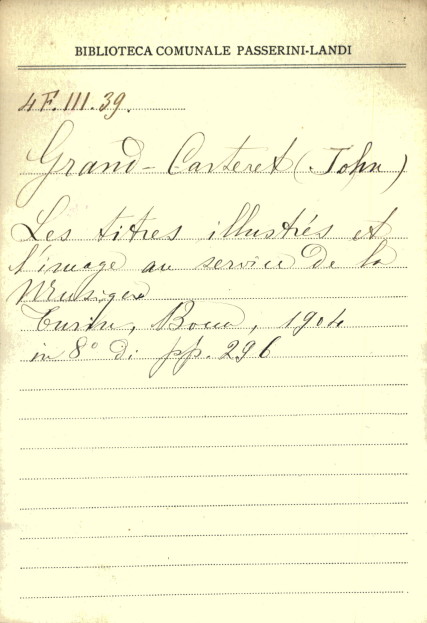 BIBLIOTECA COMUNALE PASSERINI-LANDI
4F.III.39.
Grand-Carteret (John)
Les titres illustrés et
l'image au service de la
Musique
Turin, Bocca, 1904
in 8° di pp. 296